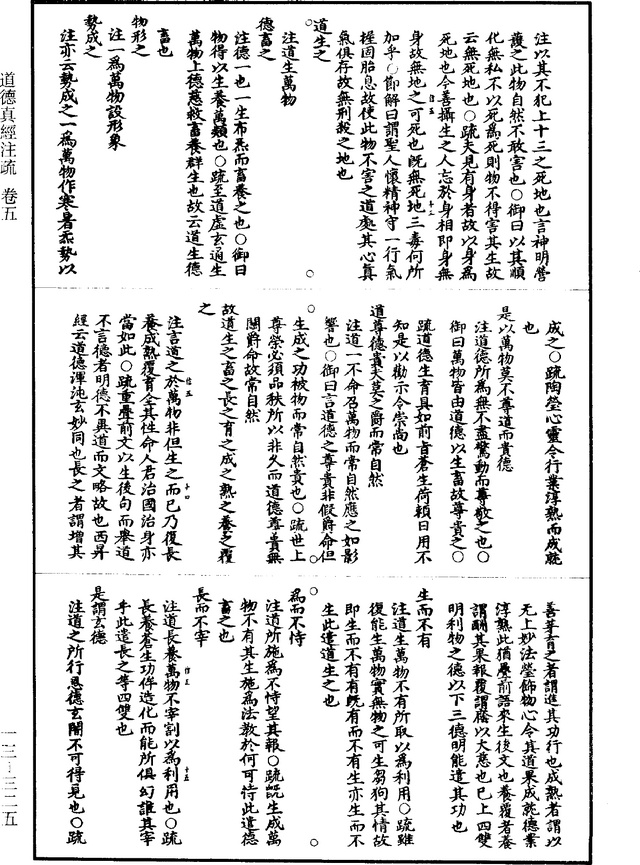 道德真經注疏 卷五
一三—三二五
注以其不犯上十三之死地也言神明營
護之此物自然不敢害也○御曰以其順
化無私不以死為死則物不得害其生故
云無死地也○疏夫見有身者故以身為
死地也今善攝生之人忘於身相即身無
身故無地之可死也既無死地三毒何所
加乎○節解曰謂聖人懷精神守一行氣
握固胎息故使此物不害之道處其心真
氣俱存故無刑殺之地也
道生之
注道生萬物
德畜之
注德一也一生布炁而畜養之也○御曰
物得以生養萬類也○疏至道虛玄通生
萬物上德慈救畜養群生也故云道生德
畜也
物形之
注一為萬物設形象
勢成之
注亦云勢成之一為萬物作寒暑炁勢以
成之○疏陶瑩心靈令行業淳熟而成就
也
是以萬物莫不尊道而貴德
注道德所為無不盡驚動而尊敬之也○
御曰萬物皆由道德以生畜故尊貴之○
疏道德生育具如前旨蒼生荷賴日用不
知是以勸示令崇尚也
道尊德貴夫莫之爵而常自然
注道一不命召萬物而常自然應之如影
響也○御曰言道德之尊貴非假爵命但
生成之功被物而常自然貴也○疏世上
尊榮必須品秩所以非久而道德尊貴無
關爵命故常自然
故道生之畜之長之育之成之熟之養之覆
之
注言道之於萬物非但生之而已乃復長
養成熟覆育全其性命人君治國治身亦
當如此○疏重疊前文以生後句而舉道
不言德者明德不異道而文略故也西昇
經云道德渾沌玄妙同也長之者謂增其
善芽育之者謂進其功行也成熟者謂以
无上妙法瑩飾物心令其道果成就德業
淳熟此猶疊前語來生後文也養覆者養
謂酬其果報覆謂廕以大慈也已上四雙
明利物之德以下三德明能遣其功也
生而不有
注道生萬物不有所取以為利用○疏雖
復能生萬物實無物之可生芻狗其情故
即生而不有有既有而不有生亦生而不
生此遣道生之也
為而不恃
注道所施為不恃望其報○疏既生成萬
物不有其生施為法教於何可恃此遣德
畜之也
長而不宰
注道長養萬物不宰割以為利用也○疏
長養蒼生功侔造化而能所俱幻誰其宰
乎此遣長之等四雙也
是謂玄德
注道之所行恩德玄闇不可得見也○疏